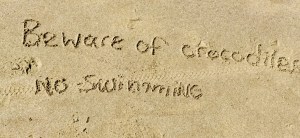 Beware of crocodiles
No Swimming